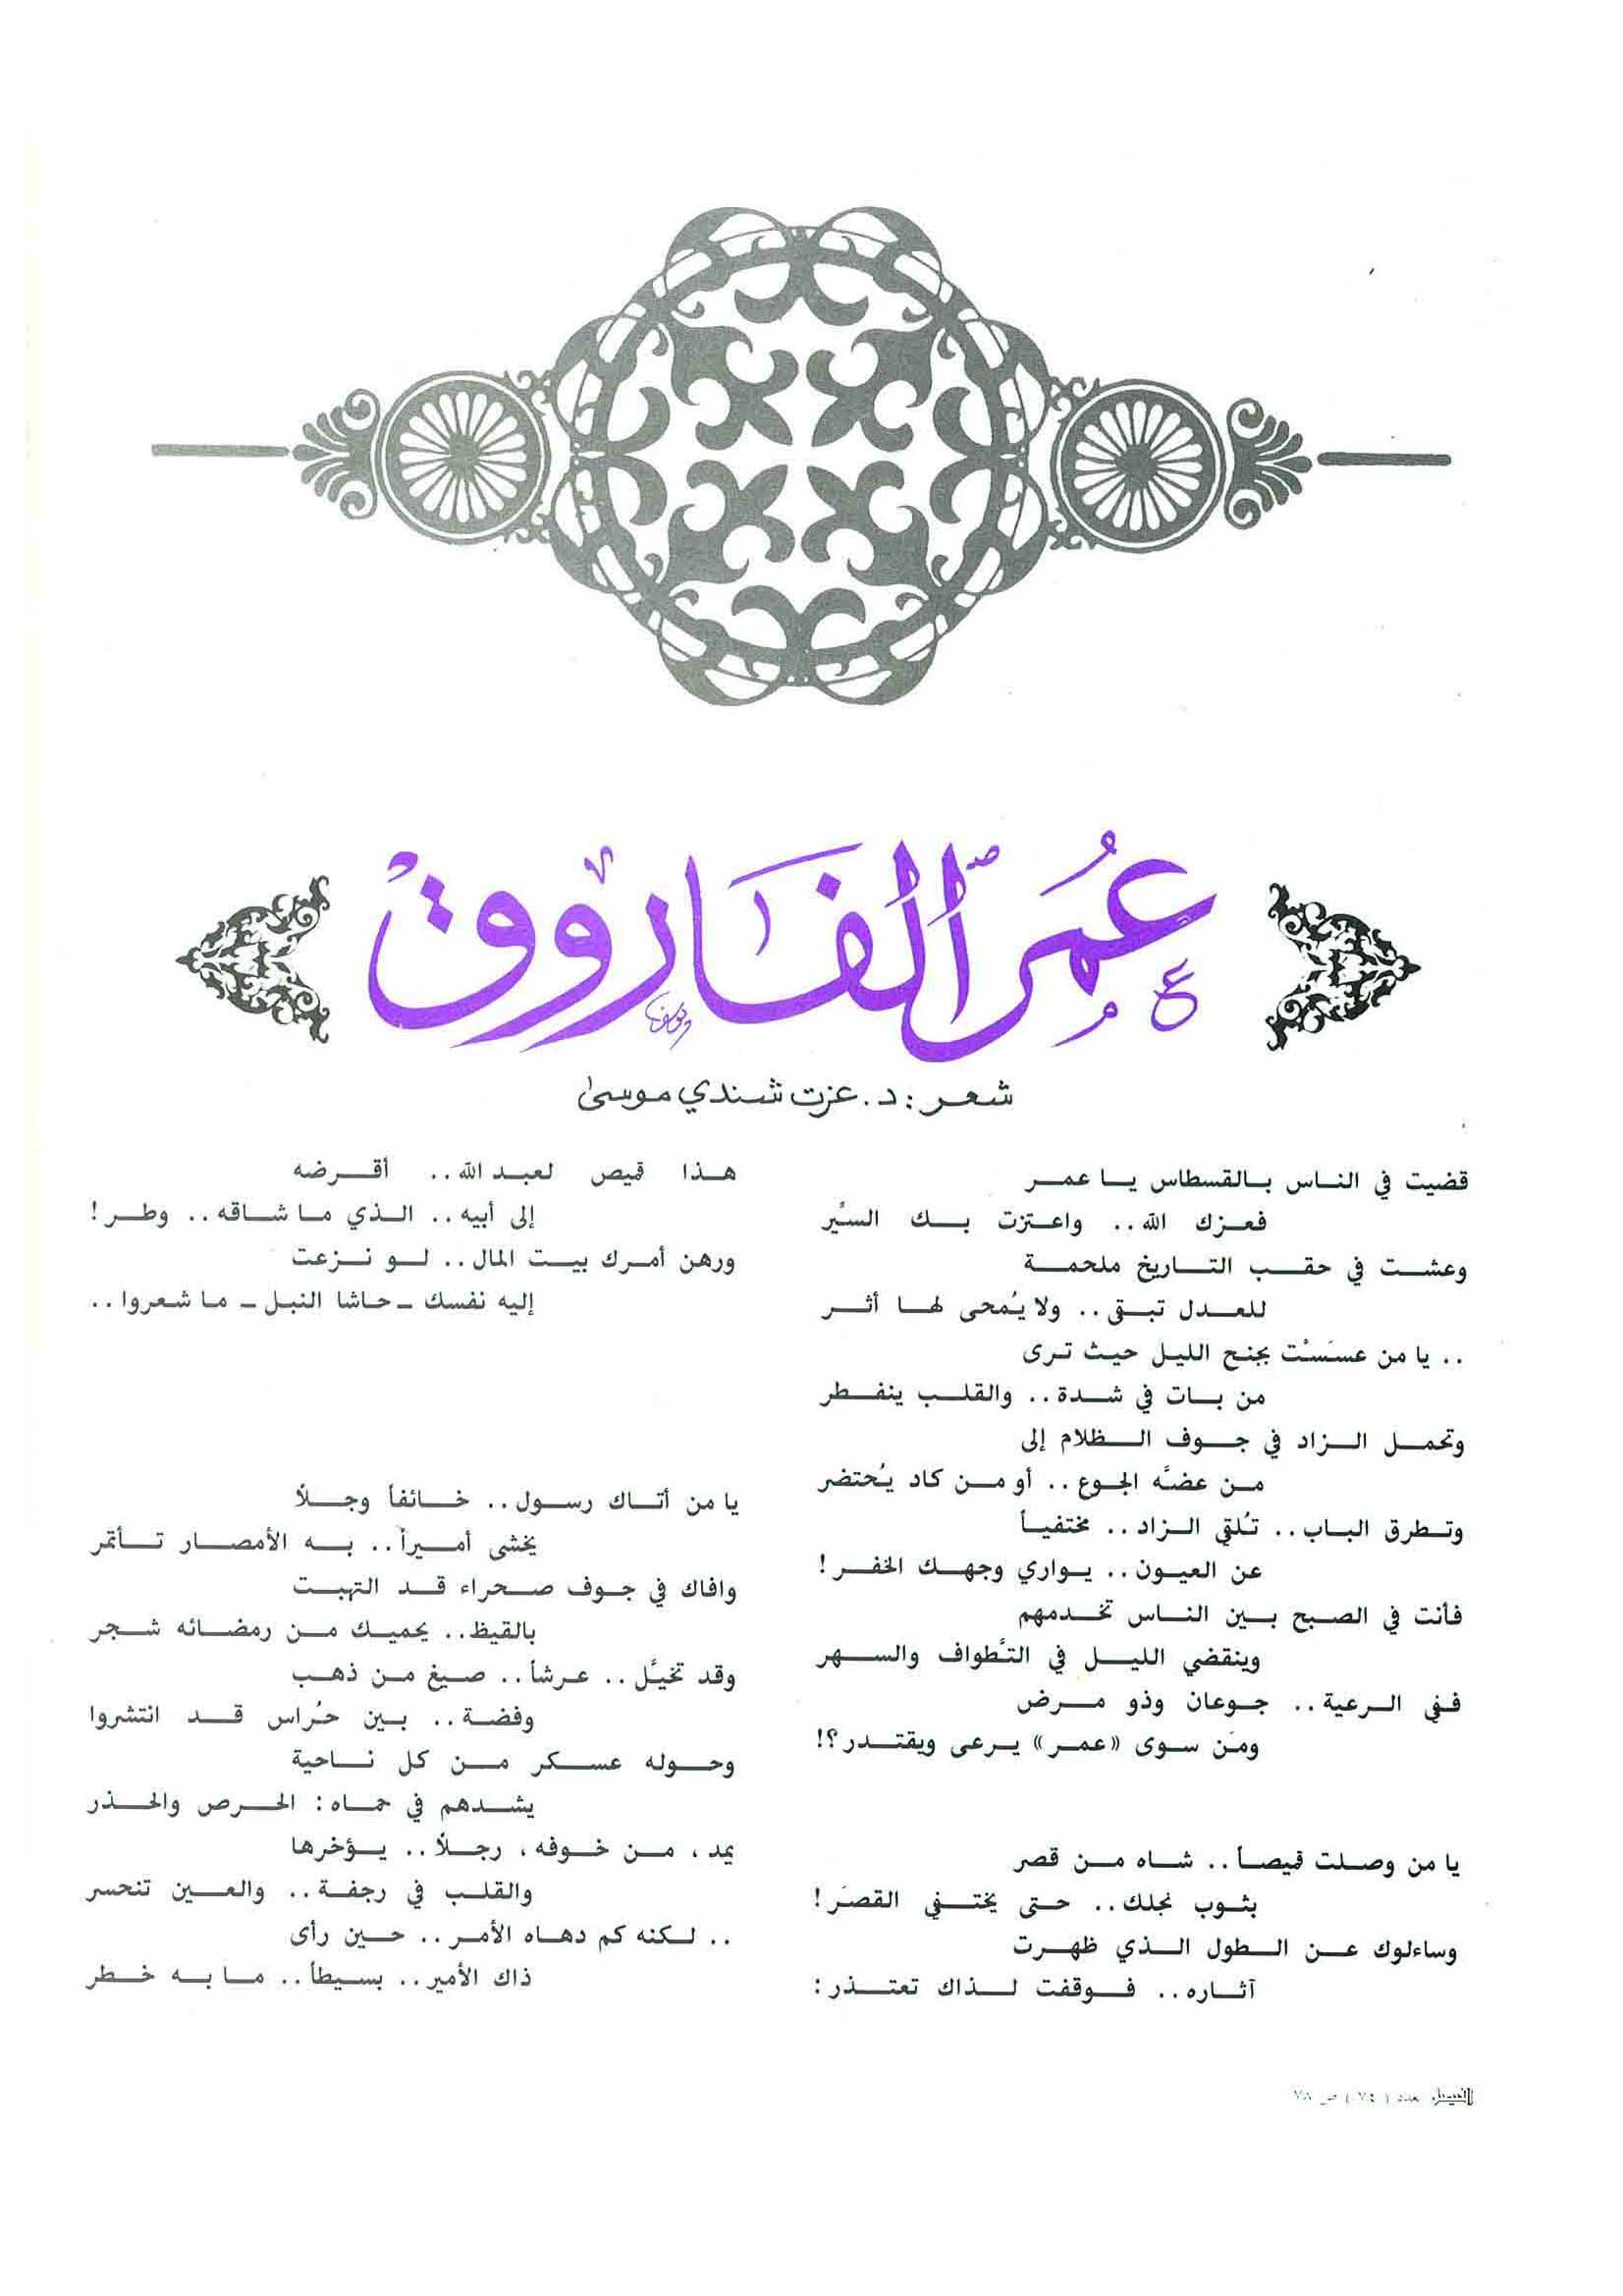 عُمَر الفَارُوق
شعر : د. عزت شندي موسى
قضيت في الناس بالقسطاس يا عمر
فعزك الله .. واعتزت بك السيَّر
وعشت في حقب التاريخ ملحمة
للعدل تبقى .. ولا يُمحى لها أثر
.. يا من عسَسْت بجنح الليل حيث ترى
من بات في شدة .. والقلب ينفطر
وتحمل الزاد في جوف الظلام إلى
من عضَّه الجوع .. أو من كاد يُحتضر
وتطرق الباب .. تُلقي الزاد .. مختفياً
عن العيون .. يواري وجهك الخفر !
فأنت في الصبح بين الناس تخدمهم
وينقضي الليل في التَّطواف والسهر
ففي الرعية .. جوعان وذو مرض
ومَن سوى «عمر» يرعى ويقتدر؟!
يا من وصلت قميصاً .. شاه من قصر
بثوب نجلك .. حتى يختفي القصَر !
وساءلوك عن الطول الذي ظهرت
آثاره .. فوقفت لذاك تعتذر :
هذا قميص لعبد الله .. أقرضه
إلى أبيه .. الذي ما شاقه .. وطر !
ورهن أمرك بيت المال .. لو نزعت
إليه نفسك ـ حاشا النبل ـ ما شعروا ..
يا من أتاك رسول .. خائفاً وجلاً
يخشى أميراً .. به الأمصار تأتمر
وافاك في جوف صحراء قد التهبت
بالقيظ .. يحميك من رمضائه شجر
وقد تخيَّل .. عرشاً .. صيغ من ذهب
وفضة .. بين حُراس قد انتشروا
وحوله عسكر من كل ناحية
يشدهم في حماه : الحرص والحذر
يمد ، من خوفه ، رجلاً .. يؤخرها
والقلب في رجفة .. والعين تنحسر
.. لكنه كم دهاه الأمر .. حين رأى
ذاك الأمير .. بسيطاً .. ما به خطر
الفيصل عدد ( ٧٤ ) ص ٧٨